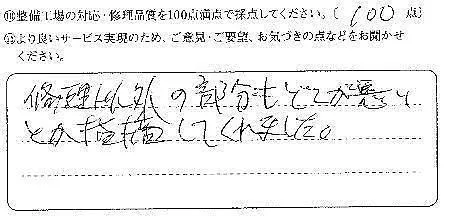 ⑭整備工場の対応・修理品質を100点満点で採点してください。〔 100 点〕
⑮より良いサービス実現のため、ご意見・ご要望、お気づきの点などをお聞かせ
ください。
修理以外の部分もどこが悪い
とか指摘してくれました。